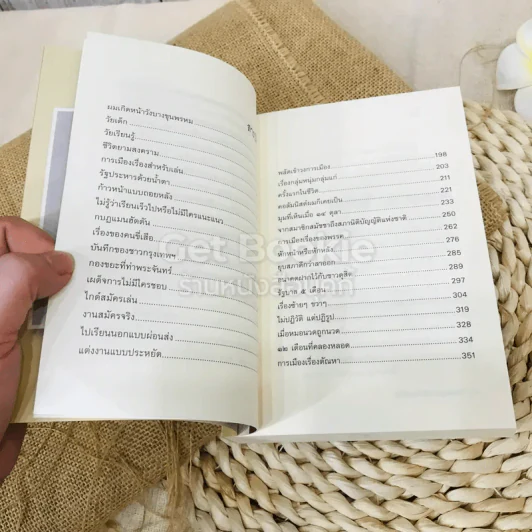 ผมเกิดหน้าวังบางขุนพรหม
วัยเด็ก
วัยเรียนรู้
ชีวิตยามสงคราม
การเมืองเรื่องสำหรับเล่น
รัฐประหารด้วยน้ำตา
ก้าวหน้าแบบถอยหลัง
ไม่รู้ว่าเรียนเร็วไปหรือไม่มีใครแนะแนว
กบฏแมนฮัตตัน
เรื่องของคนขี้เสือ
บันทึกของชาวกรุงเทพฯ
กองขยะที่ท่าพระจันทร์
เผด็จการไม่มีใครชอบ
ไกด์สมัครเล่น
งานสมัครจริง
ไปเรียนนอกแบบผ่อนส่ง
แต่งงานแบบประหยัด
พลัดเข้าวงการเมือง 198
เรื่องกลุ่มหนุ่มกลุ่มแก่ 203
ครั้งแรกในชีวิต 211
คอลัมนิสต์ผมก็เคยเป็น 221
มุมที่เห็นเมื่อ ๑๔ ตุลา 233
จากสมาชิกสมัชชาถึงสภานิติบัญญัติแห่งชาติ 250
การเมืองเรื่องของพรรค 262
ดักหน้าหรือดักหลัง
ยุบสภาดีกว่าลาออก 285
อนาคตฝากไว้กับชาวดุสิต 289
รัฐบาล ๕ เดือน 297
เรื่องซ้ายๆ ขวาๆ 304
ไม่ปฏิวัติ แต่ปฏิรูป 319
เมื่อหมอนวดถูกนวด 328
๑๒ เดือนที่คลองหลอด 334
การเมืองเรื่องตัณหา 351
Get Bookie
ร้านหนังสือเก็ทบุ๊คกี้